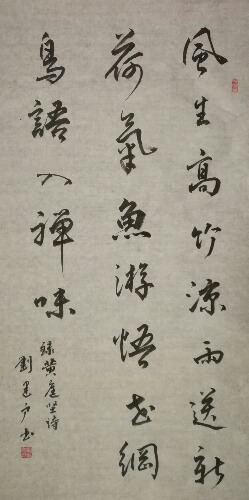 風生高竹涼雨送新
荷氣魚游悟世網
鳥語入禪味
錄黃庭堅詩
劉建户书